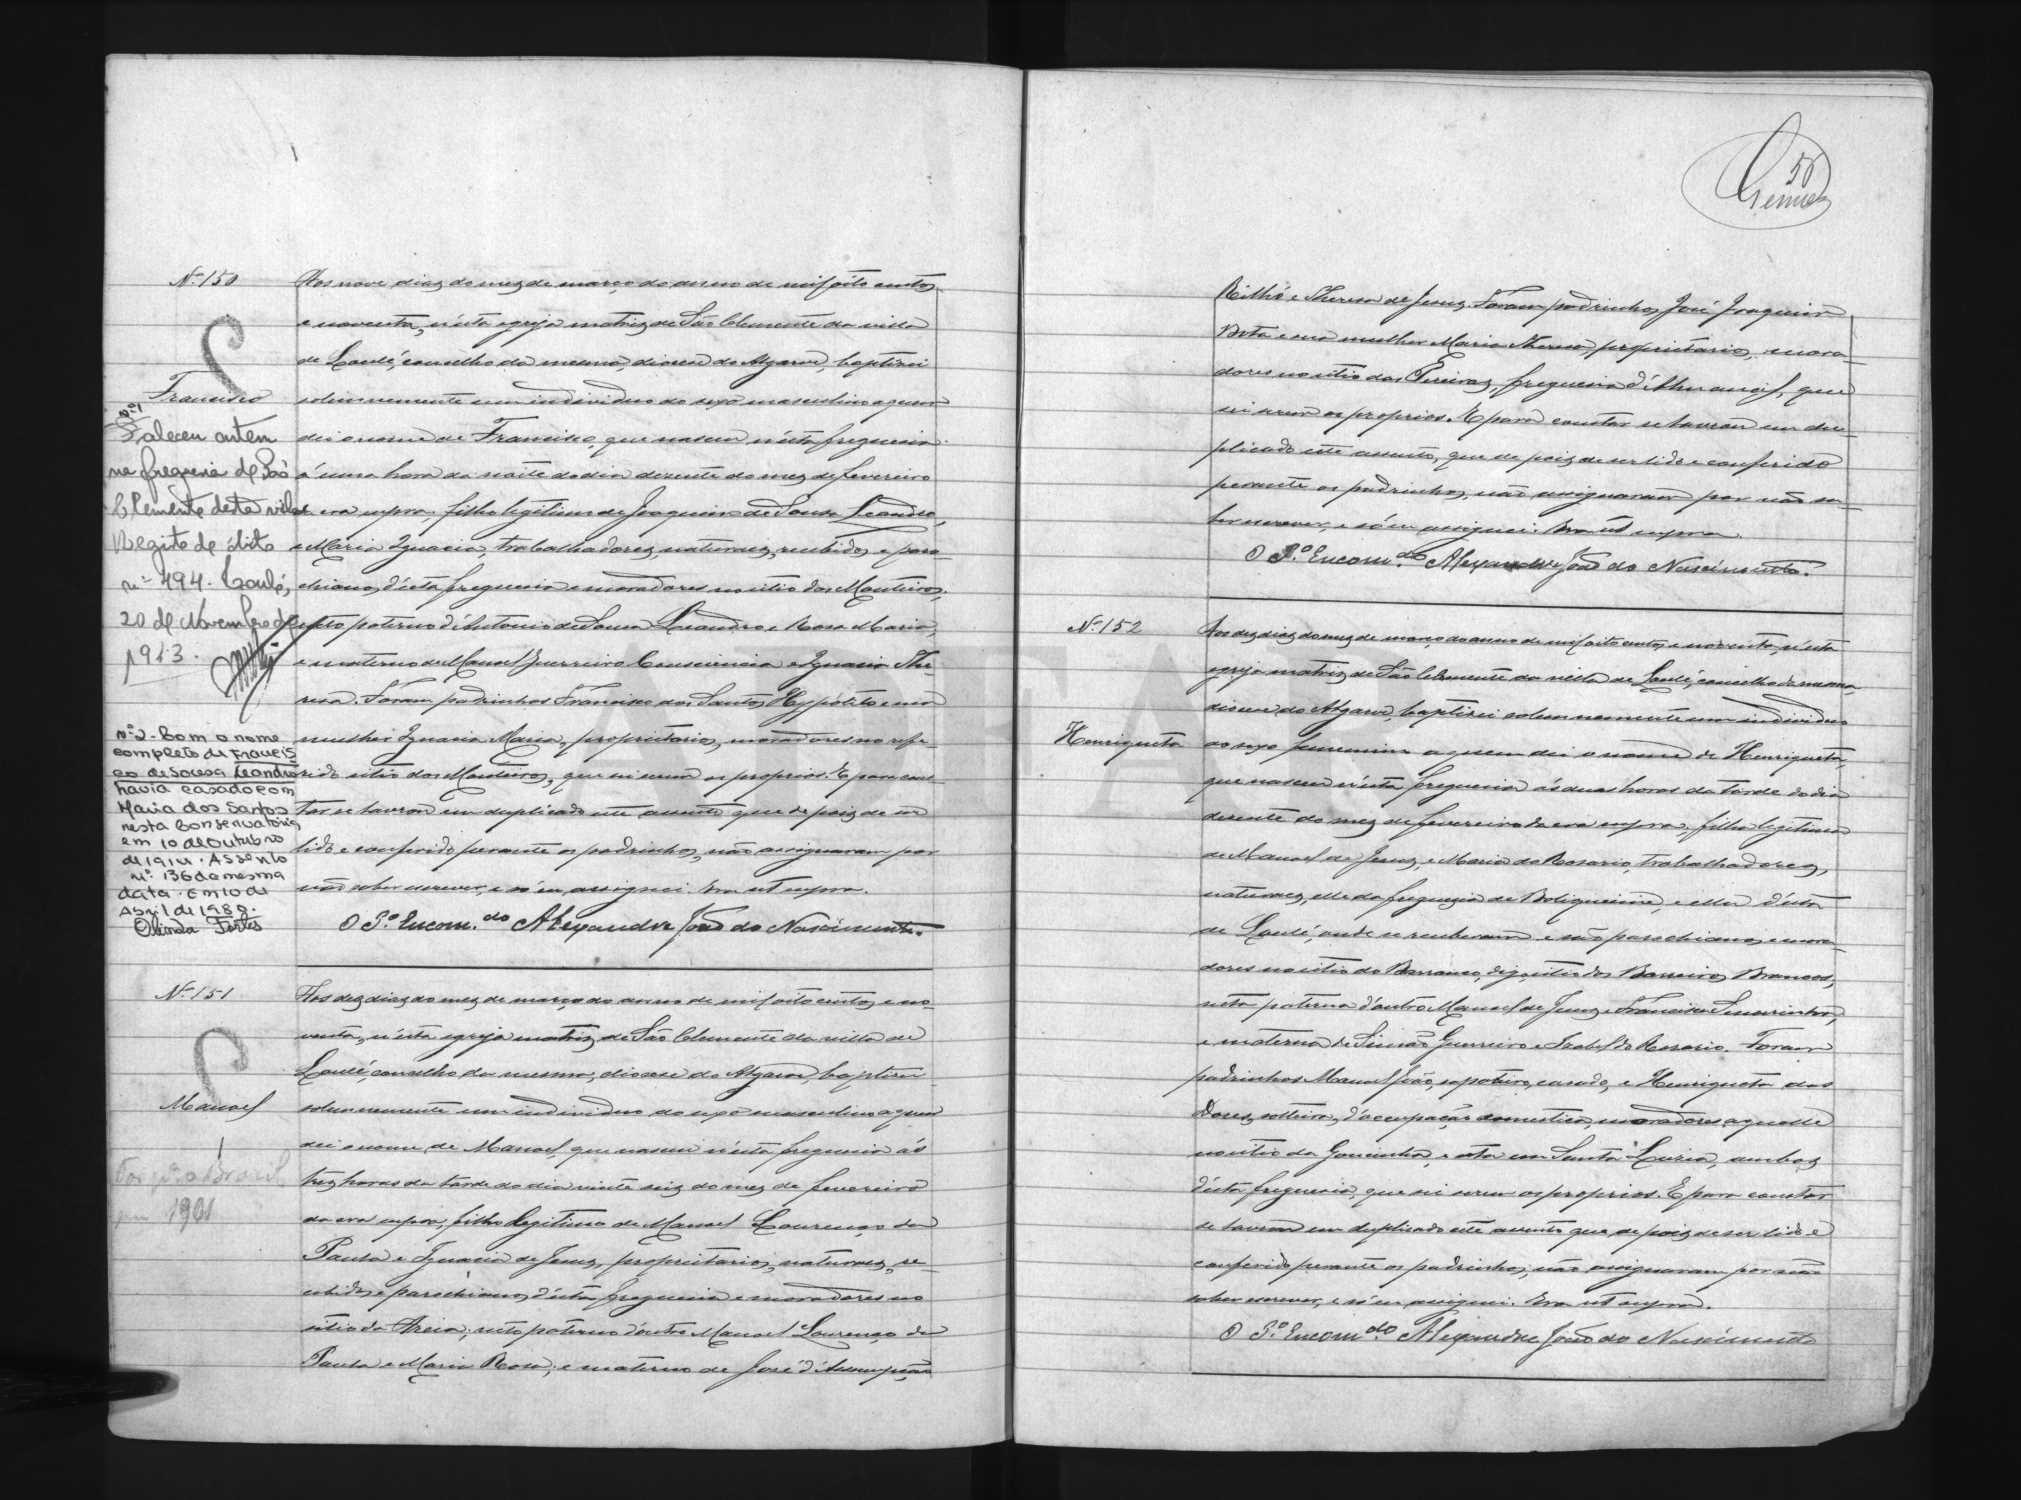 Nº 150
Francisco
nº 1
Faleceu ontem
na freguesia de São
Clemente desta vila
Registo de óbito
nº 494. Loulé,
20 de Novembro de
1943.
nº 2. Com o nome
completo de Francis
co de Sousa Leandro
havia casado com
Maria dos Santos
nesta Conservatória
em 10 de Outubro
de 1914. Assento
nº 136 da mesma
data. Em 10 de
Abril de 1980.
Aos nove dias do mez de março do anno de mil oito centos
e noventa, n'ésta egreja matriz de São Clemente da villa
de Loulé, concelho da mesma, diocese do Algarve, baptizei
solemnemente um individuo do sexo masculino a quem
dei o nome de Francisco, que nasceu n'ésta freguezia
á uma hora da noite do dia dezesete do mez de fevereiro
da era supra, filho legitimo de Joaquim de Sousa Leandro,
e Maria Ignacia, trabalhadores, naturaes, recebidos e paro
chianos d'ésta freguezia e moradores no sitio dos Monteiros,
neto paterno d'Antonio de Sousa Leandro e Rosa Maria,
e materno de Manoel Guerreiro Consciencia e Ignacia The
resa. Foram padrinhos Francisco dos Santos Hyppólito e sua
mulher Ignacia Maria, proprietarios, moradores no refe
rido sitio dos Monteiros, que sei serem os proprios. E para cons
tar se lavrou em duplicado este assento que de pois de ser
lido e conferido perante os padrinhos, não assignaram por
não saber escrever, e só eu assignei. Era ut supra.
O P.º Encom.do Alexandre João do Nascimento.
Nº 151
Manoel
Foi pª o Brazil
em 1901
Aos dez dias do mez de março do anno de mil oito centos e no
venta, n'ésta egreja matriz de São Clemente da villa de
Loulé, concelho da mesma, diocese do Algarve, baptizei
solemnemente um individuo do sexo masculino a quem
dei o nome de Manoel, que nasceu n'ésta freguezia ás
trez horas da tarde do dia vinte seis do mez de fevereiro
da era supra, filho legitimo de Manoel Lourenço da
Pauta e Ignacia de Jesus, proprietarios, naturaes, re
cebidos e parochianos d'ésta freguezia e moradores no
sitio da Areia, neto paterno d'outro Manoel Lourenço da
Pauta e Maria Rosa, e materno de José d'Assumpção
56
Rilhó e Theresa de Jesus. Foram padrinhos José Joaquim
Bota e sua mulher Maria Theresa, proprietarios, mora
dores no sitio das Pereiras, freguezia d'Almancil, que
sei serem os proprios. E para constar se lavrou em du
plicado este assento, que de pois de ser lido e conferido
perante os padrinhos, não assignaram por não sa
ber escrever, e só eu assignei. Era ut supra.
O P.º Encom.do Alexandre João do Nascimento.
Nº 152
Henriqueta
Aos dez dias do mez de março do anno de mil oito centos e noventa, n'ésta
egreja matriz de São Clemente da villa de Loulé, concelho da mesma
diocese do Algarve, baptizei solemnemente um individuo
do sexo femenino a quem dei o nome de Henriqueta,
que nasceu n'ésta freguezia ás duas horas da tarde do dia
dezesete do mez de fevereiro da era supra, filha legitima
de Manoel de Jesus, e Maria do Rosario, trabalhadores,
naturaes, elle da freguezia de Boliqueime, e ella d'ésta
de Loulé, onde se receberam e são parochianos e mora
dores no sitio do Barranco, digo, sitio dos Barreiros Brancos,
neta paterna d'outro Manoel de Jesus e Francisca
e materna de Simão Guerreiro e Izabel do Rosario. Foram
padrinhos Manoel João, sapateiro, casado, e Henriqueta das
Dores, solteira, d'occupação domestica, moradores aquelle
no sitio da Goncinha, e esta em Santa Luzia, ambos
d'ésta freguezia, que sei serem os proprios. E para constar
se lavrou em duplicado este assento que de pois de ser lido e
conferido perante os padrinhos, não assignaram por não
saber escrever, e só eu assignei. Era ut supra.
O P.º Encom.do Alexandre João do Nascimento
ADFAR